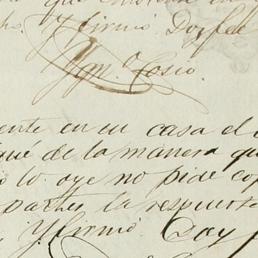 Y firmó Doy fe
Ygn.o Cosio.
ente en su casa el
que de la manera qu
lo oye no pide cop
partes la respuesta
Y firmó. Doy f